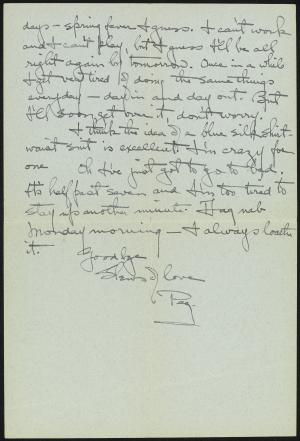 days - spring fever I guess. I can't work
and I can't play, but I guess I'll be all
right again by tomorrow. Once in a while
I get very tired of doing the same things
everyday - day in and day out. But
I'll soon get over it, don't worry.
I think the idea of a blue silk shirt-
waist suit is excellent. I'm crazy for
one. Oh I've just got to go to bed.
It's half past seven and I'm too tired to
stay up another minute.
Monday morning - I always loathe
it.
Goodbye
of love
Peg.